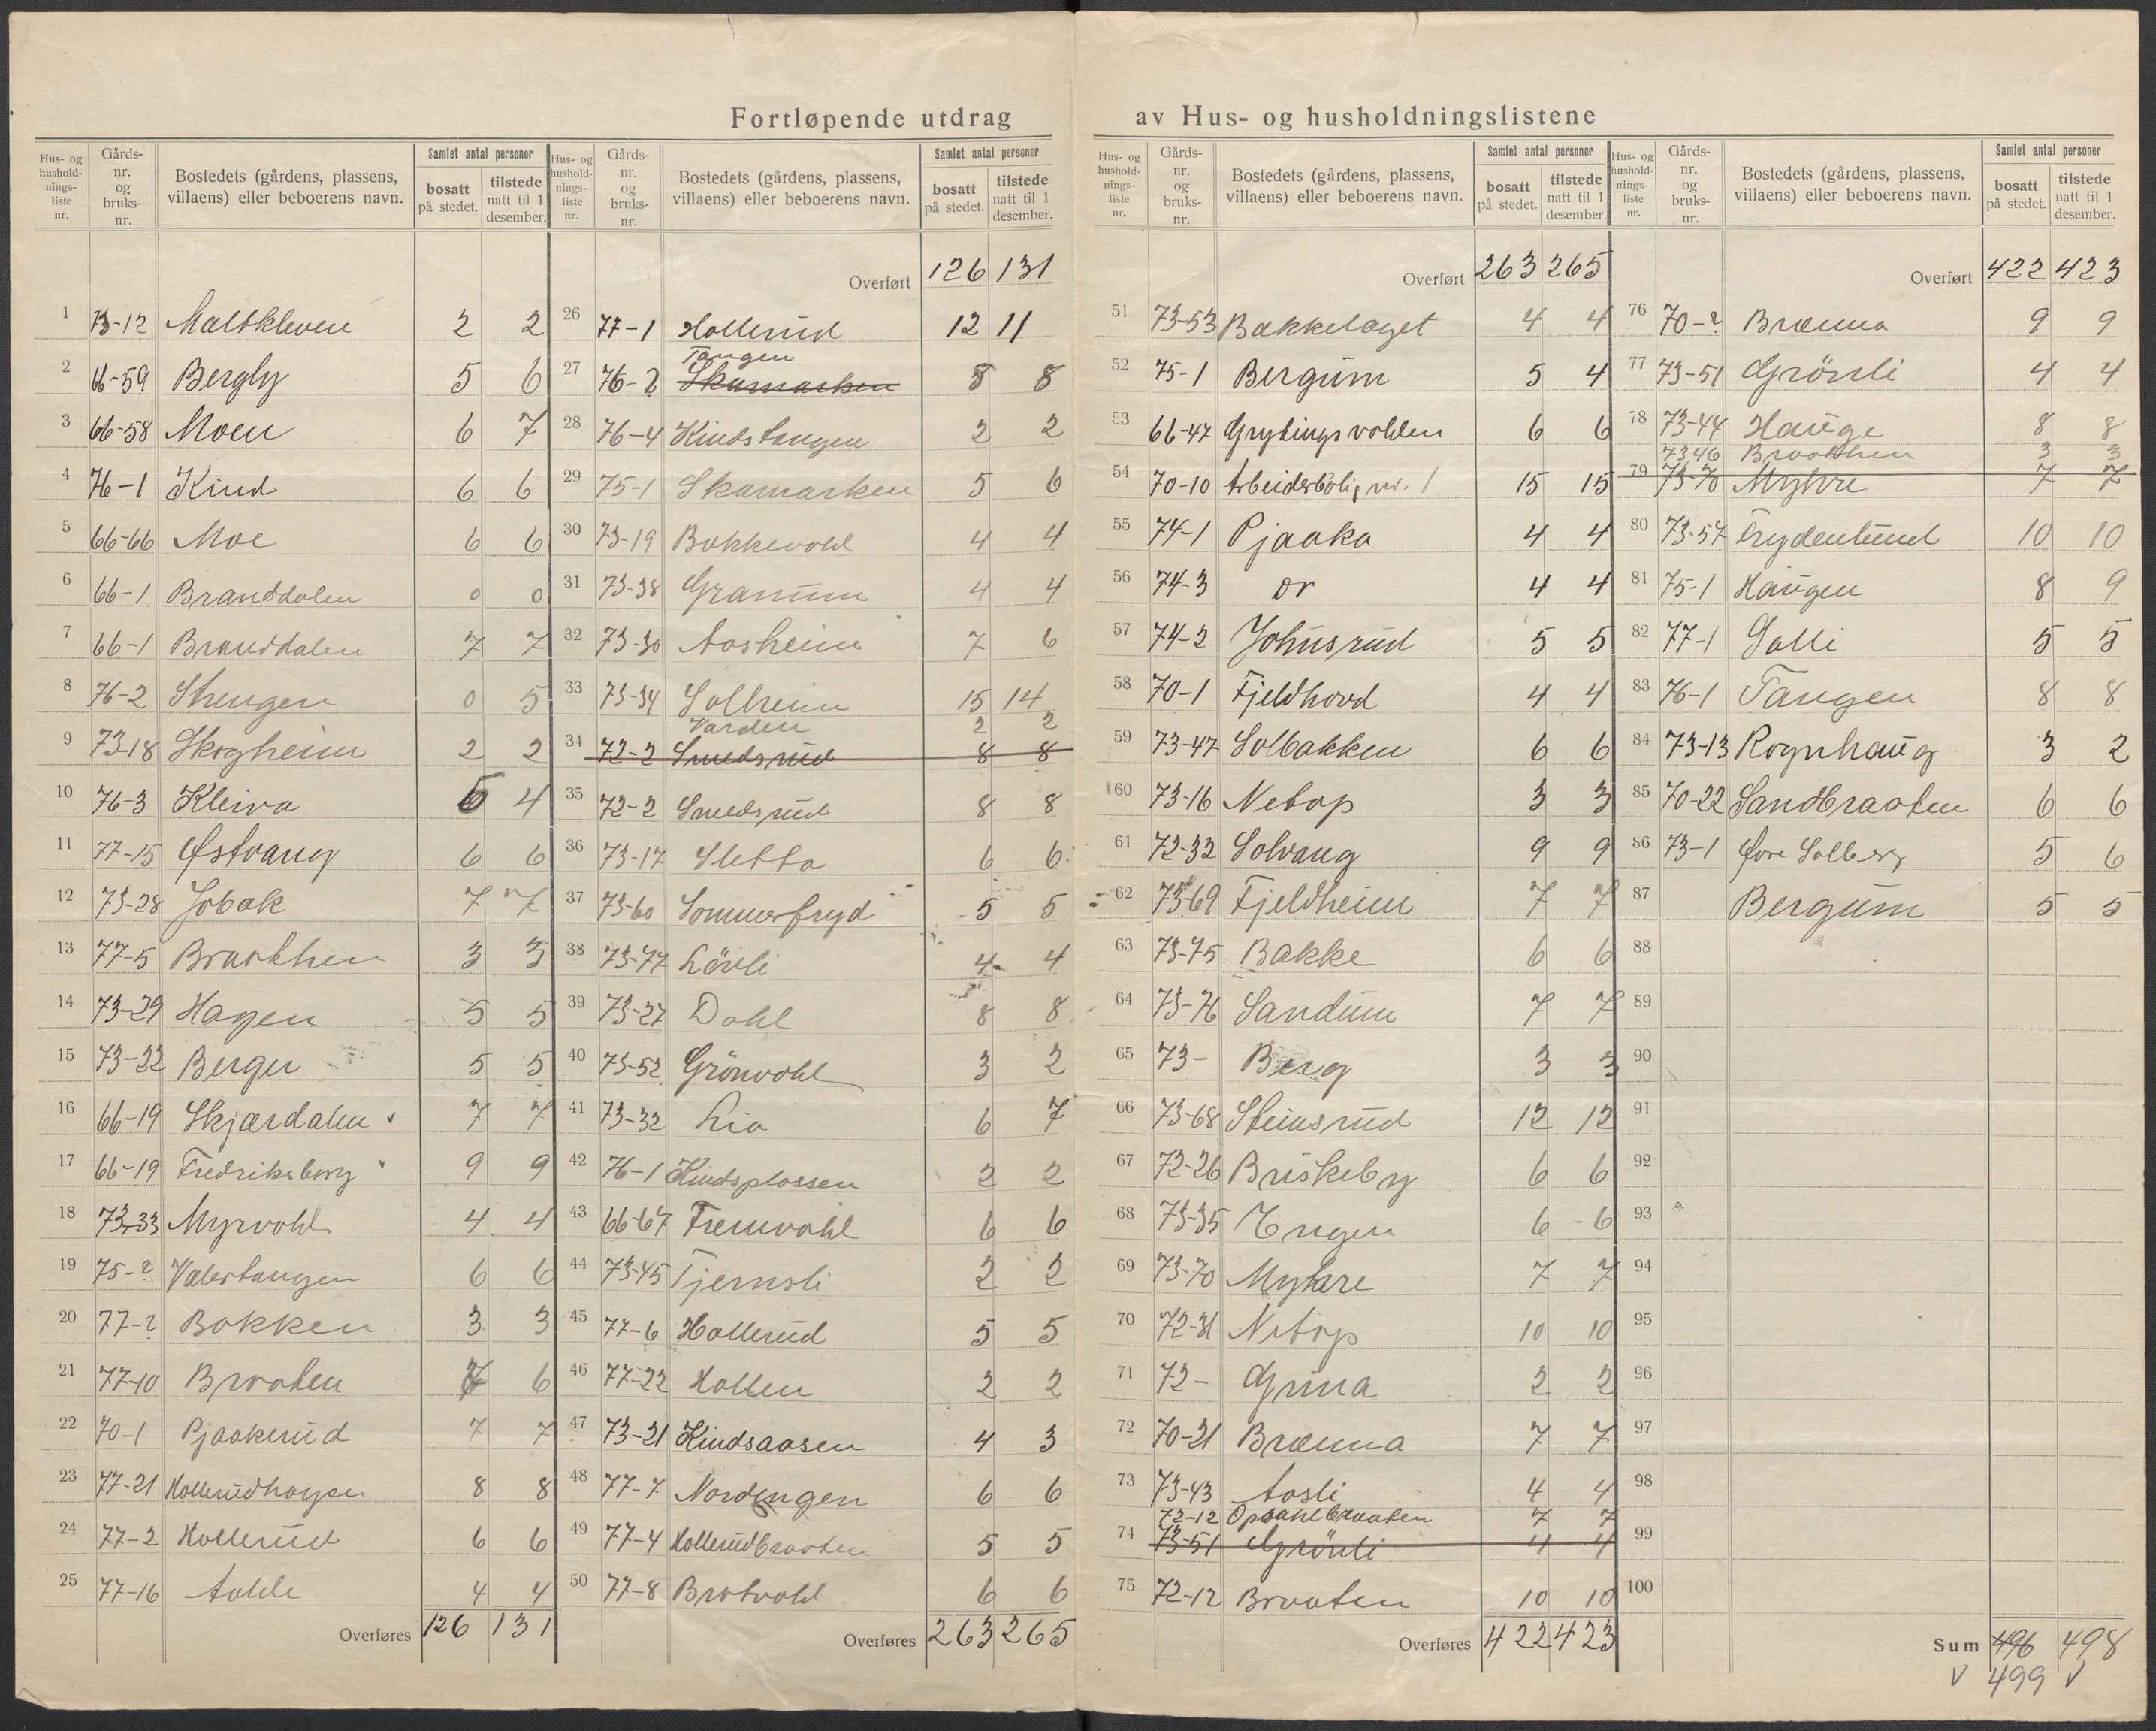 Fortløpende utdrag av Hus- og husholdningslistene
Hus- og hushold-nings-liste nr. Gårds-nr. og bruks-nr. Bostedets (gårdens, plassens, villaens) eller beboerens navn. Samlet antal personer bosatt på stedet. tilstede natt til 1 desember.
1 73-12 Maltkleven 2 2
2 66-59 Bergly 5 6
3 66-58 Moen 6 7
4 76-1 Kind 6 6
5 66-66 Moe 6 6
6 66-1 Branddalen 0 0
7 66-1 Branddalen 7 7
8 76-2 Strengen 0 5
9 73-18 Skogheim 2 2
10 76-3 Kleiva 5 4
11 77-15 Østvang 6 6
12 73-28 Jobak 7 7
13 77-5 Braathen 3 3
14 73-29 Hagen 5 5
15 73-22 Berger 5 5
16 66-19 Skjærdalen 7 7
17 66-19 Fredriksberg 9 9
18 73-33 Myrvohl 4 4
19 75-? Valertangen 6 6
20 77-? Bakken 3 3
21 77-10 Braaten 7 6
22 70-1 Pjaakerud 7 7
23 77-21 Hollerudhagen 8 8
24 77-2 Hollerud 6 6
25 77-16 4 4
Overføres 126 131
Hus- og hushold-nings-liste nr. Gårds-nr. og bruks-nr. Bostedets (gårdens, plassens, villaens) eller beboerens navn. Samlet antal personer bosatt på stedet. tilstede natt til 1 desember.
Overført 126 131
26 77-1 Hollerud 12 11
Tangen
27 76-2 Skamarken 8 8
28 76-4 Kindstangen 2 2
29 75-1 Skamarken 5 6
30 73-19 Bakkevohl 4 4
31 73-38 Granum 4 4
32 73-30 Aasheim 7 6
33 73-34 Solheim 15 14
Varden 2 2
34 72-2 Smedsrud 8 8
35 72-2 Smedsrud 8 8
36 73-17 Sletta 6 6
37 73-60 Sommerfryd 5 5
38 73-77 Lövli 4 4
39 73-27 Dahl 8 8
40 73-52 Grönvohl 3 2
41 73-32 Lia 6 7
42 76-1 Kindsplassen 2 2
43 66-67 Fremvohl 6 6
44 73-45 Tjernsli 2 2
45 77-6 Hollerud 5 5
46 77-22 Hollen 2 2
47 73-21 Kindsaasen 4 3
48 77-7 Nordengen 6 6
49 77-4 Hollerudbraaten 5 5
50 77-8 Bratvohl 6 6
Overføres 263 265
Hus- og hushold-nings-liste nr. Gårds-nr. og bruks-nr. Bostedets (gårdens, plassens, villaens) eller beboerens navn. Samlet antal personer bosatt på stedet. tilstede natt til 1 desember.
Overført 263 265
51 73-53 Bakkehaget 4 4
52 75-1 Bergum 5 4
53 66-47 Grytingsvolden 6 6
54 70-10 Arbeiderbolig nr. 1 15 15
55 74-1 Pjaaka 4 4
56 74-3 do 4 4
57 74-2 Johnsrud 5 5
58 70-1 Fjeldhovd 4 4
59 73-47 Solbakken 6 6
60 73-16 Nebop 3 3
61 72-32 Solvang 9 9
62 73-69 Fjeldheim 7 7
63 73-75 Bakke 6 6
64 73-76 Sandum 7 7
65 73- Berg 3 3
66 73-68 Steinsrud 12 12
67 72-26 Briskeby 6 6
68 73-35 Engen 6 6
69 73-70 Myhre 7 7
70 72-31 Nebop 10 10
71 72- Gruna 2 2
72 70-21 Brænna 7 7
73 73-43 Aasli 4 4
72-12 Opsahlbraaten 7 7
74 73-51 Grönli 4 4
75 72-12 Braaten 10 10
Overføres 422 423
Hus- og hushold-nings-liste nr. Gårds-nr. og bruks-nr. Bostedets (gårdens, plassens, villaens) eller beboerens navn. Samlet antal personer bosatt på stedet. tilstede natt til 1 desember.
Overført 422 423
76 70-? Brænna 9 9
77 73-51 Grönli 4 4
78 73-44 Hauge 8 8
73 46 Braathen 3 3
79 73-70 Myhre 7 7
80 73-57 Frydenlund 10 10
81 75-1 Haugen 8 9
82 77-1 Solli 5 5
83 76-1 Tangen 8 8
84 73-13 Rognhaug 3 2
85 70-22 Sandbraaten 6 6
86 73-1 Øvre Solberg 5 6
87 Bergum 5 5
88
89
90
91
92
93
94
95
96
97
98
99
100
Sum 496 498
√ 499 √